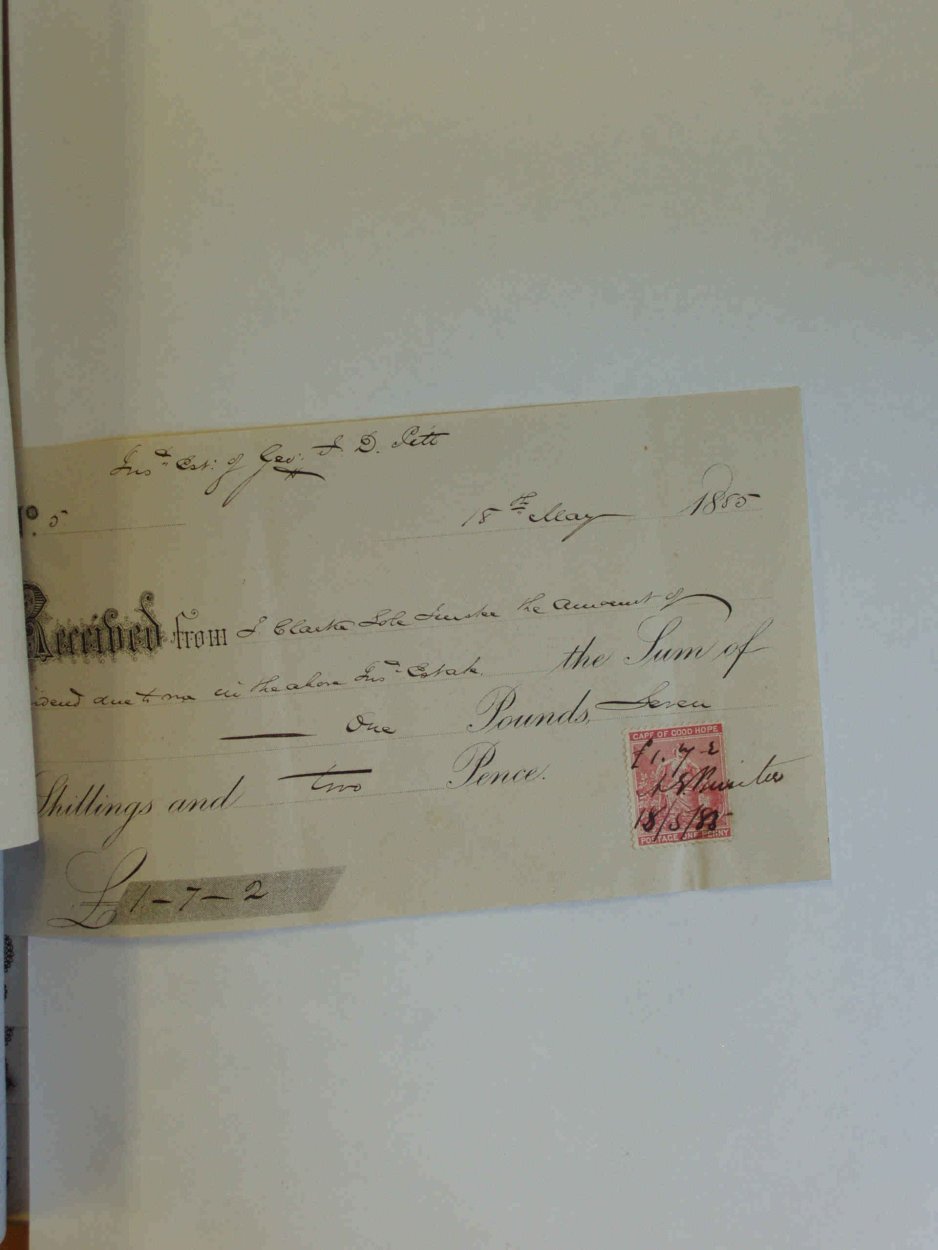 Insᵈ Est: of Geo: J. D. Pett
º. 5
18th May 1885
Received from J Clarke Sole Trustee the amount of
idend due to me in the above Insᵈ Estate, the Sum of
One Pounds, Seven
Shillings and two Pence.
£1-7-2
CAPE OF GOOD HOPE
£1. 7-2
18/5/85
POSTAGE ONE PENNY